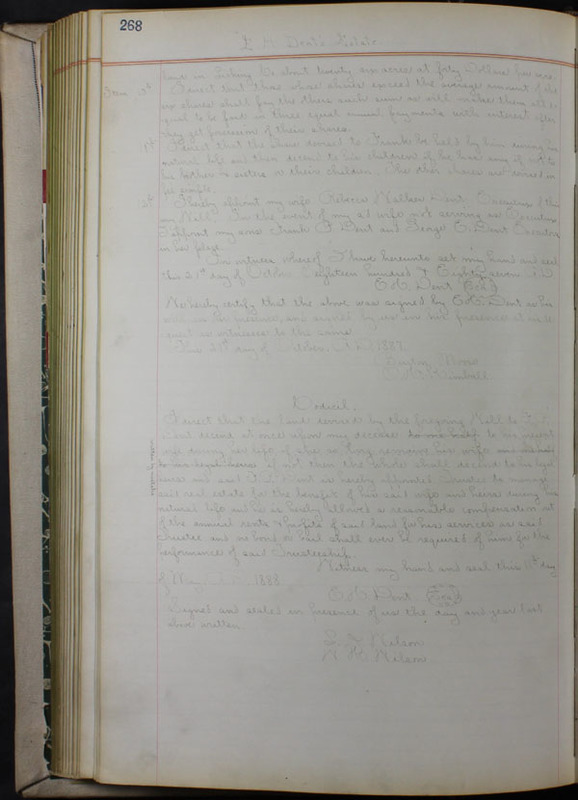 268
Dent's Estate
be about twenty six acres at forty Dollars per acre
Item 3rd I direct that those whose shares exceed the average amount of the
six shares shall pay the others such sum as will make them all e-
qual to be paid in three equal annual payments with interest after
they get possession of their shares.
I direct that the share devised to Frank be held by him during his
natural life and then descend to his children if he has any if not to
his brothers & sisters or their children. The other shares are devised in
fee simple.
I hereby appoint my wife Rebecca Wallace Dent Executrix of this
my Will. In the event of my said wife not serving as Executrix
I appoint my sons Frank Dent and George E. Dent Executors
in her place.
In witness whereof I have hereunto set my hand and seal
this 21st day of October Eighteen hundred & Eighty seven A.D.
Dent Seal
We hereby certify that the above was signed by Dent as his
will in our presence, and signed by us in his presence at his re-
quest as witnesses to the same.
This 21st day of October, A.D. 1887.
Codicil.
I direct that the land devised by the foregoing Will to
Dent descend at once upon my decease to his present
wife during her life if she so long remains his wife
to his legal heirs if not then the whole shall descend to his legal
heirs and said Dent is hereby appointed Trustee to manage
said real estate for the benefit of his said wife and heirs during his
natural life and he is hereby allowed a reasonable compensation out
of the annual rents & profits of said land for his services as said
Trustee and no bond or bail shall ever be required of him for the
performance of said Trusteeship.
Witness my hand and seal this day
of May 1888
Dent Seal
Signed and sealed in presence of us the day and year last
above written.
Wilson
Wilson